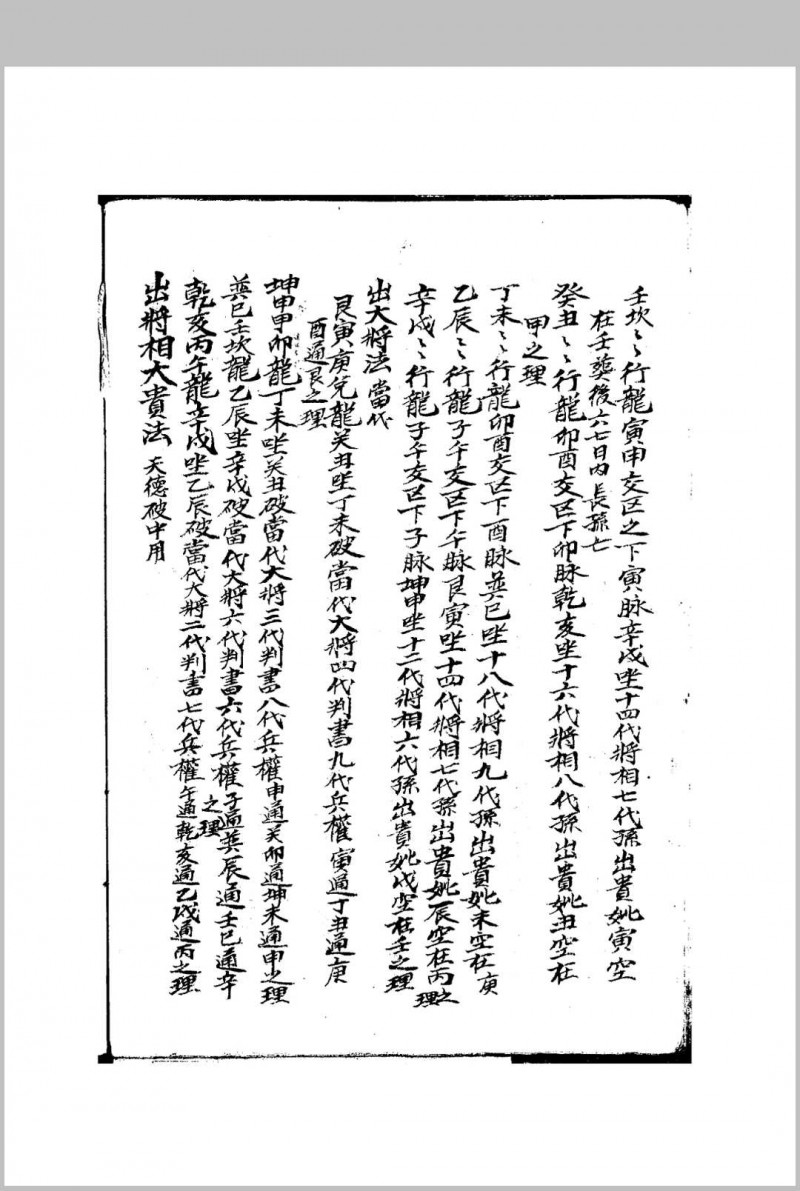 壬坎〻〻行龍寅申交区之下寅脉辛戌坐十四代將相七代孫出貴妣寅空
在壬葬後六七日內長孫亡
癸丑〻〻行龍卯酉交区下卯脉乾亥坐十六代將相八代孫出貴妣丑空在
甲之理
丁未〻〻行龍卯酉交区下酉脉巽巳坐十八代將相九代孫出貴妣未空在庚
乙辰〻〻行龍子午交区下午脉艮寅坐十四代將相七代孫出貴妣辰空在丙之理
辛戌〻〻行龍子午交区下子脉坤申坐十二代將相六代孫出貴妣戌空在壬之理
出大將法 當代
艮寅庚兌龍癸丑坐丁未破當代大將四代判書九代兵權寅通丁丑通庚
酉通艮之理
坤申甲卯龍丁未坐癸丑破當代大將三代判書八代兵權申通癸卯通坤未通甲之理
巽巳壬坎龍乙辰坐辛戌破當代大將六代判書六代兵權子通巽辰通壬巳通辛
之理
乾亥丙午龍辛戌坐乙辰破當代大將二代判書七代兵權午通乾亥通乙戌通丙之理
出將相大貴法 天德破中用